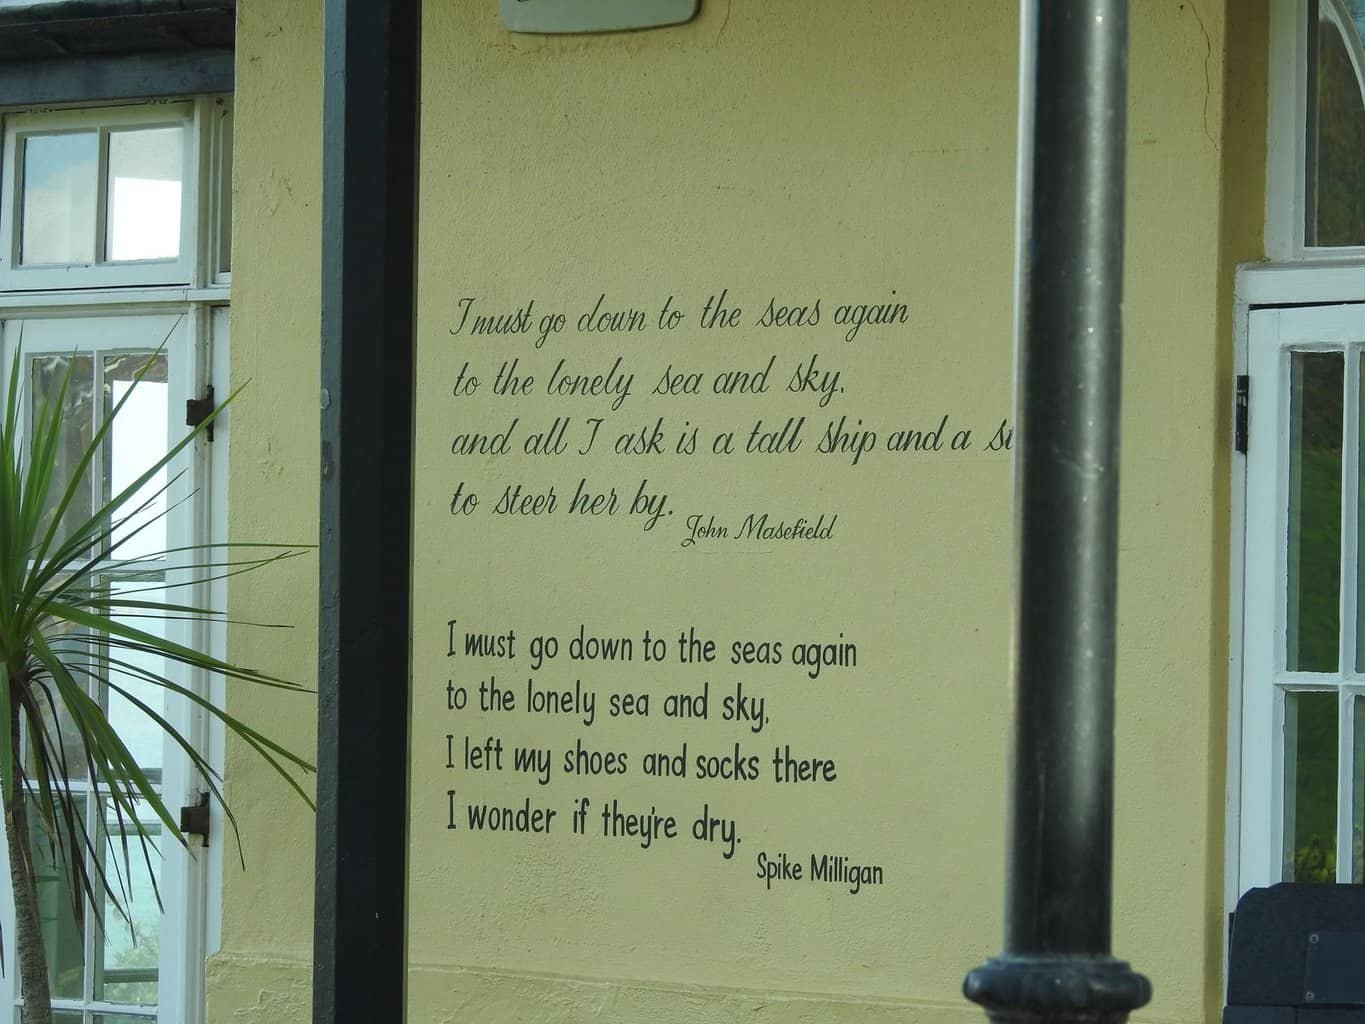 I must go down to the seas again
to the lonely sea and sky,
and all I ask is a tall ship and a
to steer her by.
John Masefield
I must go down to the seas again
to the lonely sea and sky,
I left my shoes and socks there
I wonder if they're dry.
Spike Milligan